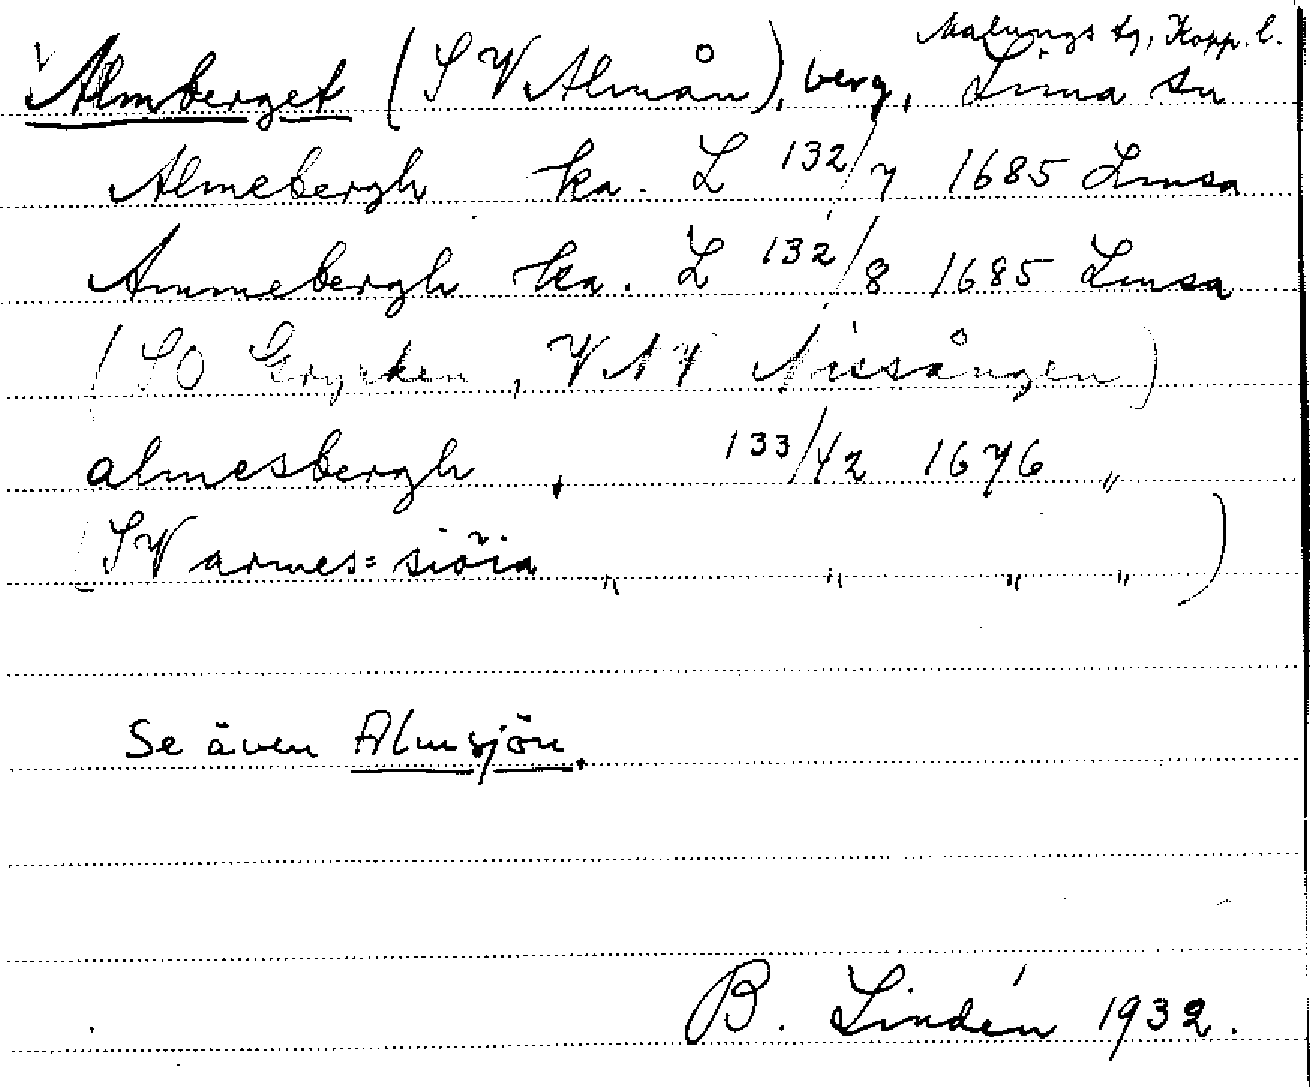 Malungs tg, Kopp. l.
Almberget (SV Almån), berg, Lima sn
Almebergh ka. L 132/7 1685 Lmsa
Ammebergh ka. L 132/8 1685 Lmsa
(SO Grycken, VNV Nissången)
almesbergh, 133/42 1676 "
(SV armes= siöia " " " ")
Se även Almsjön.
B. Lindén 1932.